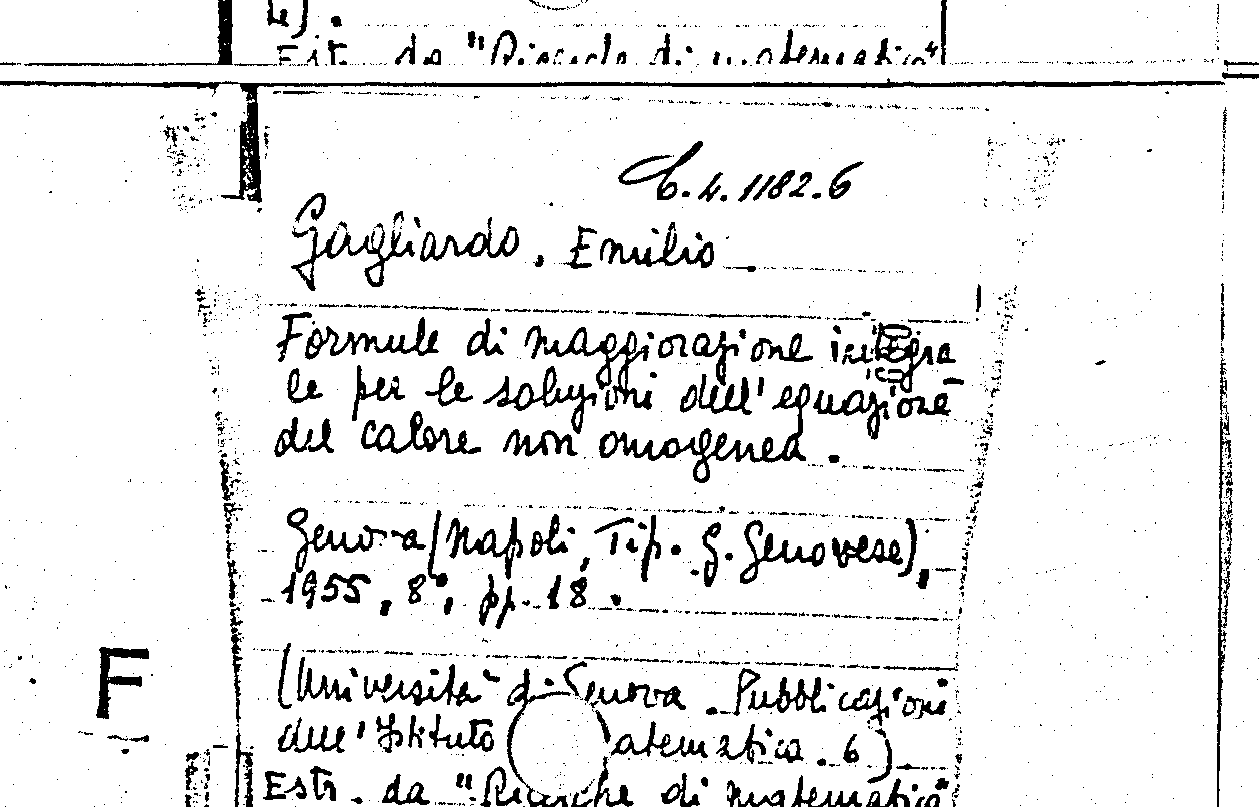 4).
Estr. da "Ricerche di matematica"
C.4.1182.6
Gagliardo, Emilio
Formule di maggiorazione integra
le per le soluzioni dell'equazione
del calore non omogenea.
Genova (Napoli, Tip. G. Genovese),
1955, 8°, pp. 18.
F
(Università di Genova. Pubblicazioni
dell'Istituto atematica. 6).
Estr. da "Ricerche di matematica"